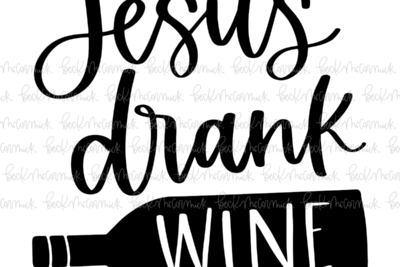 Jesus
drank
WINE